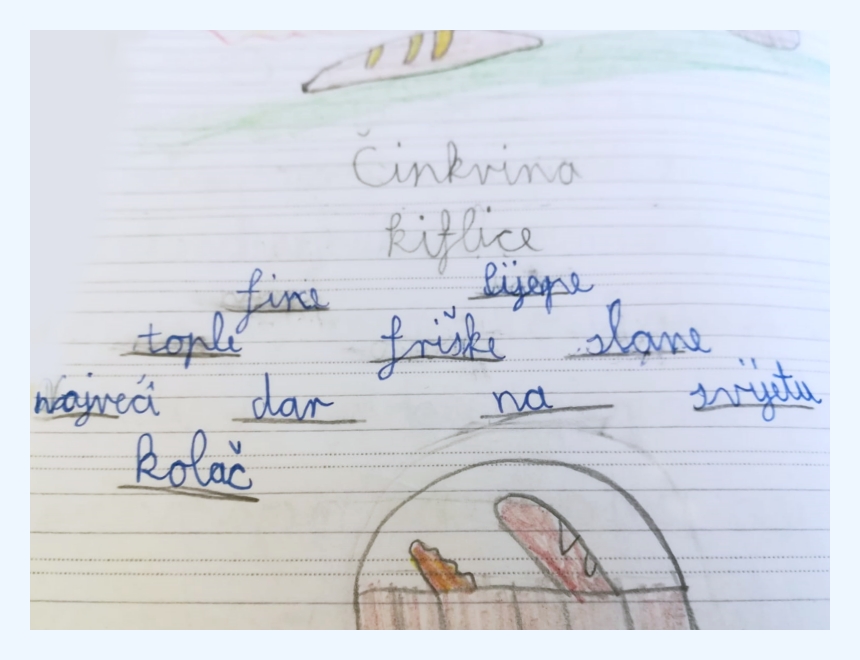 Činkvina
kiflice
fine lijepe
tople friške slane
najveći dar na svijetu
kolač